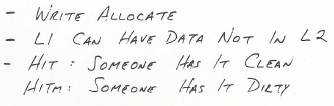 - WRITE ALLOCATE
- L1 CAN HAVE DATA NOT IN L2
- HIT : SOMEONE HAS IT CLEAN
HITM : SOMEONE HAS IT DIRTY